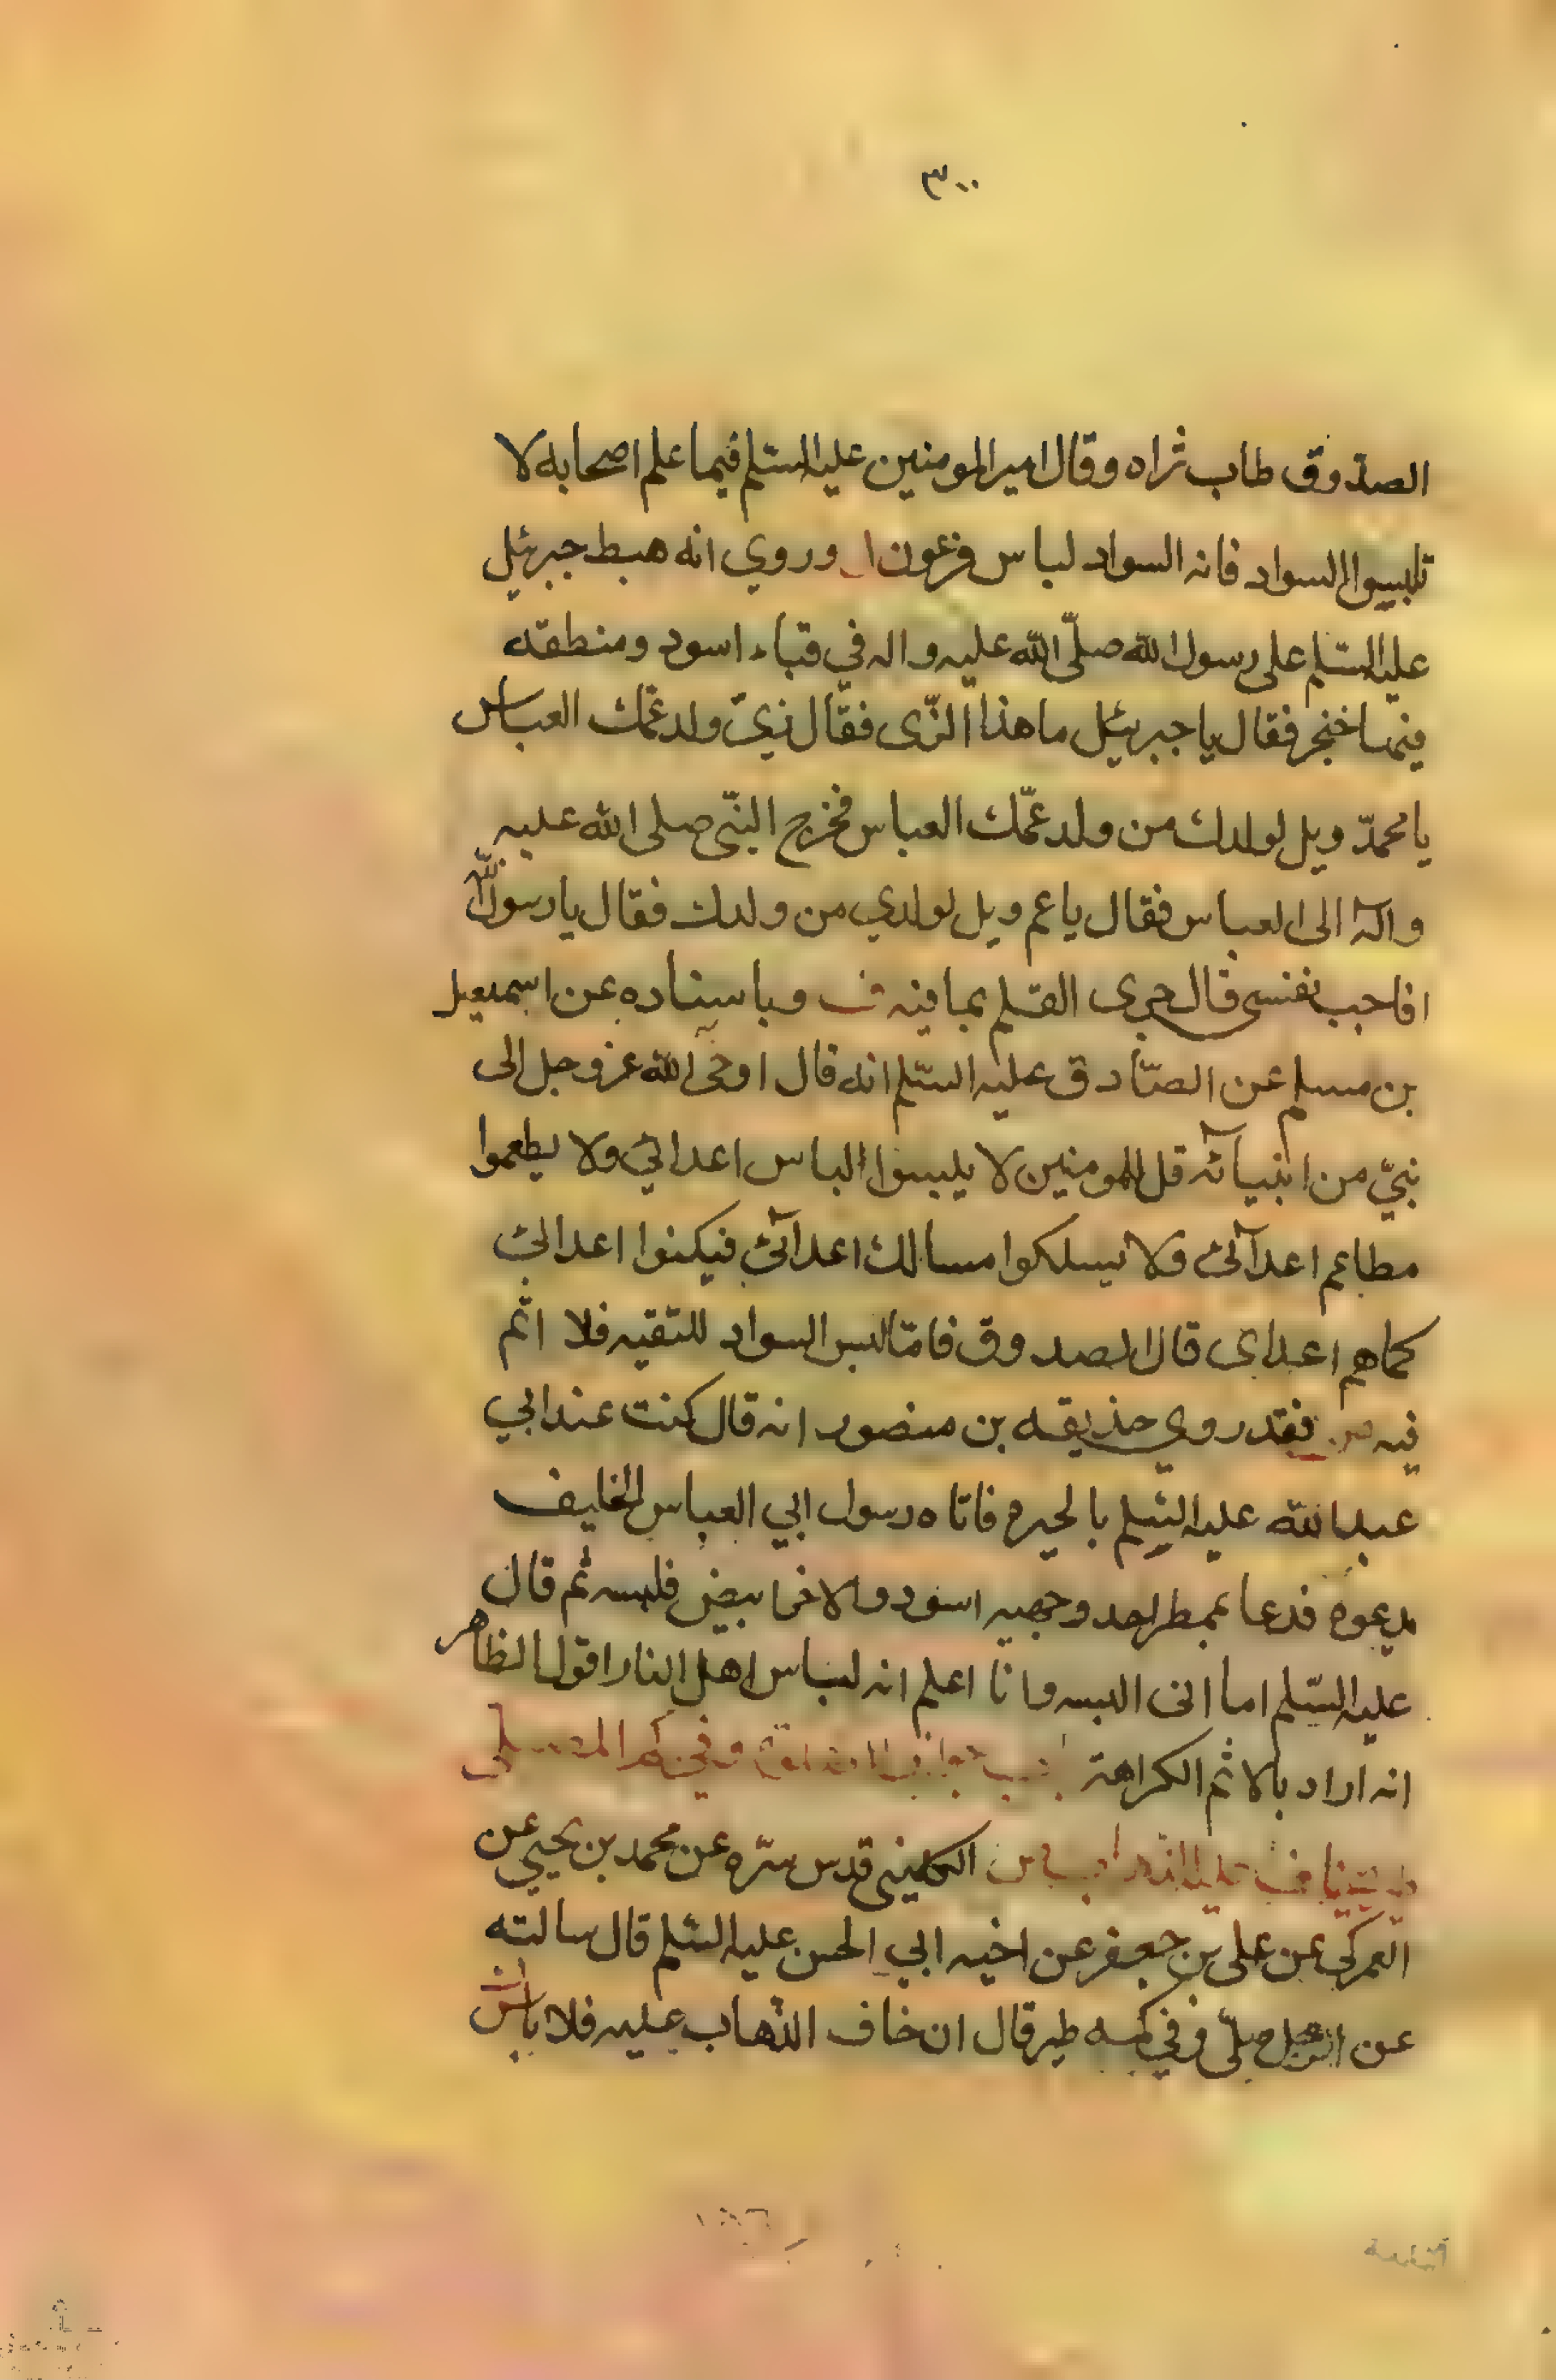 ٣٠٠
الصدوق طاب ثراه وقال امير المومنين عليه السلم فيما علم اصحابه لا
تلبسوا السواد فانه السواد لباس فرعون وروي انه هبط جبرئيل
عليه السلم على رسول الله صلّى الله عليه واله في قباء اسود ومنطقه
فيها خنجر فقال يا جبرئيل ما هذا الزّى فقال زىّ ولد عمّك العباس
يا محمدّ ويل لولدك من ولد عمّك العباس فخرج النبّى صلى الله عليه
وآله الى العباس فقال يا عم ويل لولدي من ولدك فقال يا رسول الله
افاجب نفسى قال جرى القلم بما فيه وباسناده عن اسمعيل
بن مسلم عن الصّادق عليه السّلم انه قال اوحى الله عز وجل الى
نبيّ من انبيائه قل للمومنين لا يلبسوا لباس اعدائي ولا يطعموا
مطاعم اعدآئى ولا يسلكوا مسالك اعدآئى فيكنوا اعدائى
كما هم اعداى قال الصدوق فامّا لبس السواد للتقيه فلا اثم
فيه فقد روي حذيقه بن منصور انه قال كنت عند ابي
عبد الله عليه السّلم بالحيره فاتاه رسول ابي العباس الخليفه
يدعوه فدعا بممطر احد وجهيه اسود والاخر ابيض فلبسه ثم قال
عليه السّلم اما انى البسه وانا اعلم انه لباس اهل النار اقول الظاهر
انه اراد بالاثم الكراهة
الكلينى قدس سرّه عن محمد بن يحيى عن
العمركى عن على بن جعفر عن اخيه ابي الحسن عليه السّلم قال سالته
عن الرجل صلّى وفي كمه طير قال ان خاف الذهاب عليه فلا باس